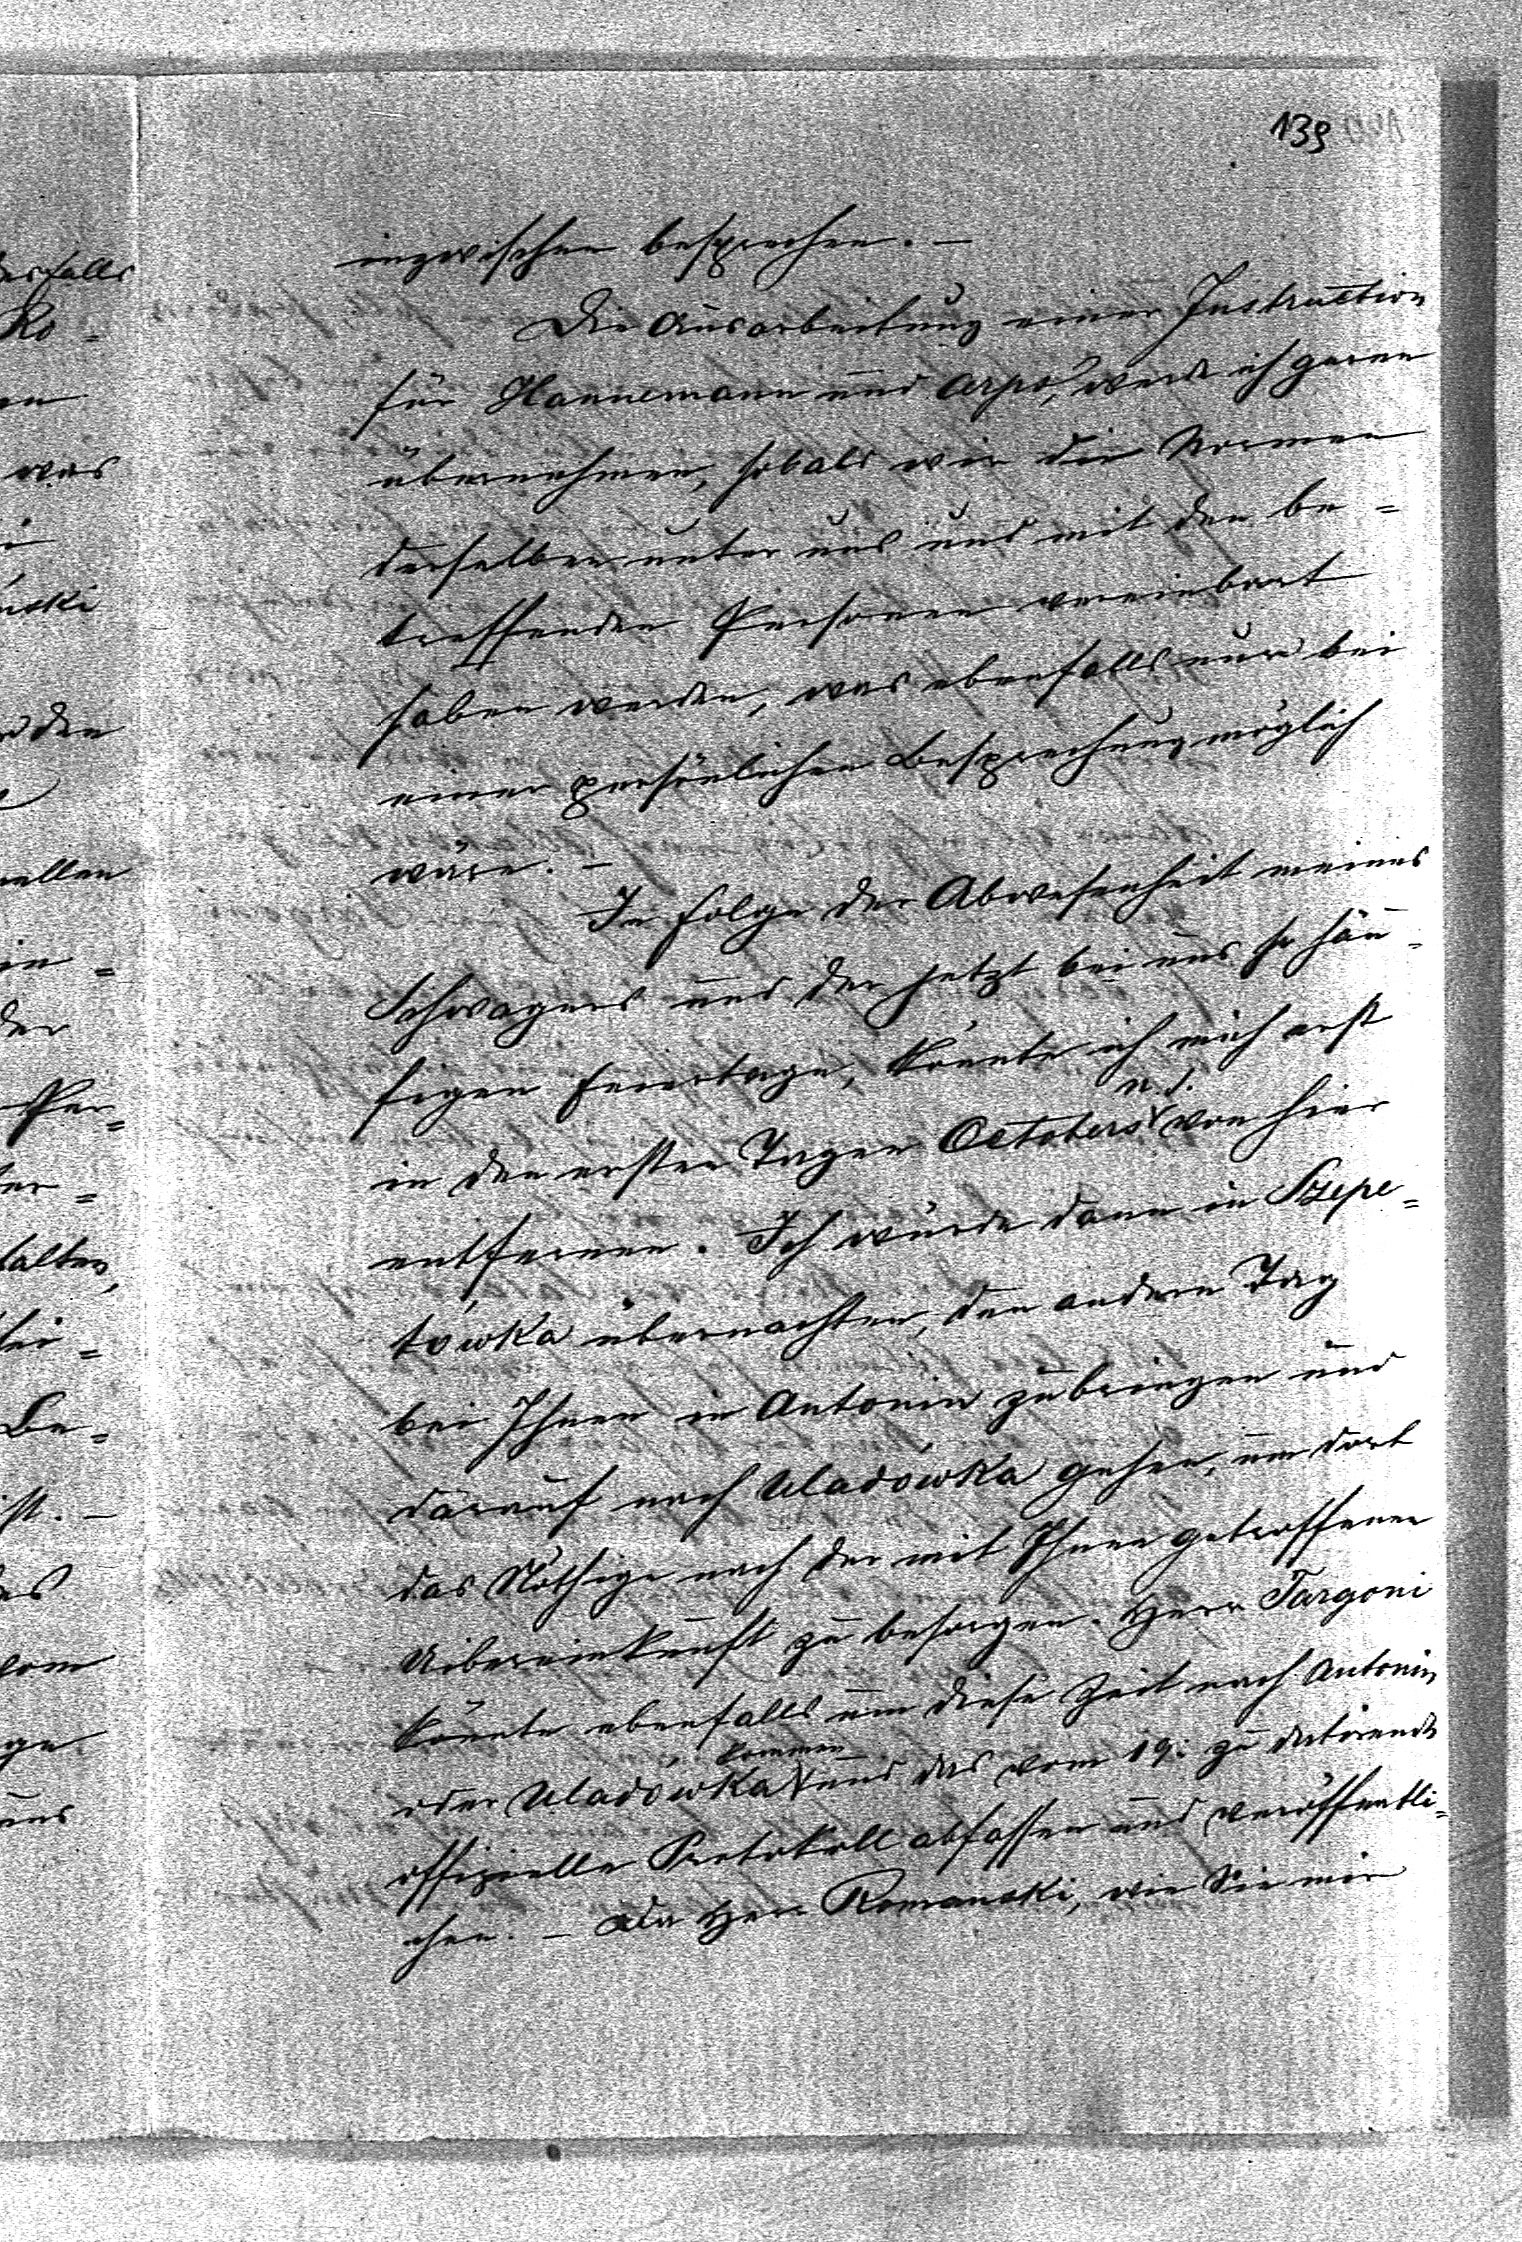 139
inzwischen besprechen. –
Die Ausarbeitung einer Instruction
für Hannemann und Arpo, werde ich gerne
übernehmen, sobald wir die Normen
derselben unter uns und mit den be=
treffenden Personen vereinbart
haben werden, was ebenfalls nur bei
einer persönlichen Besprechung möglich
wäre. –
In Folge der Abwesenheit meines
Schwagers und der jetzt bei uns so häu=
figen Feiertage, könnte ich mich erst
in den ersten Tagen Octobers n. S. von hier
entfernen. Ich würde dann in Szepe=
tówka übernachten, den andern Tag
bei Ihnen in Antonin zubringen und
darauf nach Uladówka gehen, um dort
das Nöthige nach der mit Ihnen getroffenen
Uibereinkunft zu besorgen. Herr Targoni
könnte ebenfalls um diese Zeit nach Antonin
oder Uladówka kommen und das vom 19: zu datirende
offizielle Protokoll abfassen und veröffentli=
chen. – Da Herr Romanski, wie Sie mir